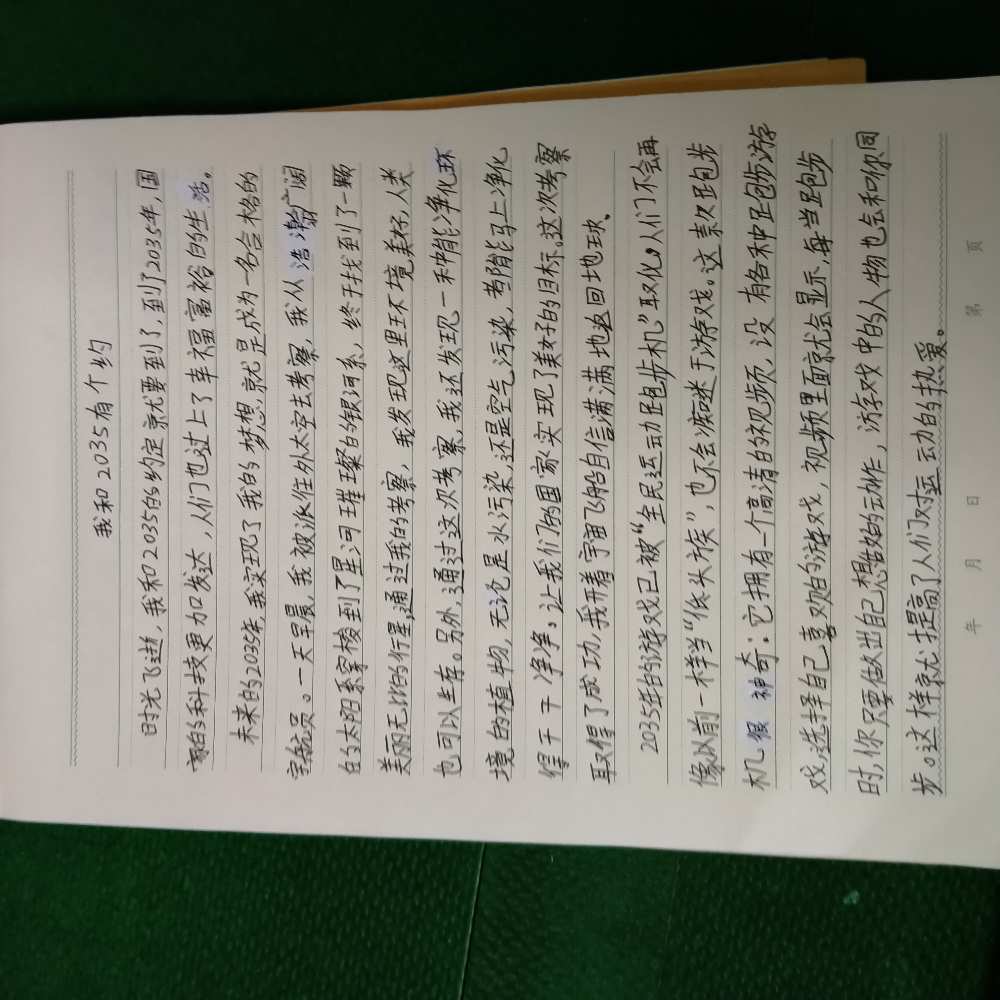 我和2035有个约
时光飞逝,我和2035的约定就要到了,到了2035年,国
家的科技更加发达,人们也过上了幸福富裕的生活。
未来的2035年,我实现了我的梦想,就是成为一名合格的
宇航员。一天早晨,我被派住外太空去考察,我从浩瀚广阔
的太阳系穿梭到了星河璀璨的银河系,终于找到了一颗
美丽无比的行星,通过我的考察,我发现这里环境美好,人类
也可以生存。另外,通过这次考察,我还发现一种能净化环
境的植物,无论是水污染,还是空气污染,都能马上净化
得干干净净。让我们的国家实现了美好的目标。这次考察
取得了成功,我开着宇宙飞船自信满满地返回地球。
2035年的游戏已被“全民运动跑步机”取化,人们不会再
像以前一样当“低头族”,也不会痴迷于游戏。这款跑步
机很神奇:它拥有一个高清的视频,设有各种跑步游
戏,选择自己喜欢的游戏,视频里面就会显示,每当跑步
时,你只要做出自己想做的动作,游戏中的人物也会和你同
步。这样就提高了人们对运动的热爱。
年 月 日 第 页